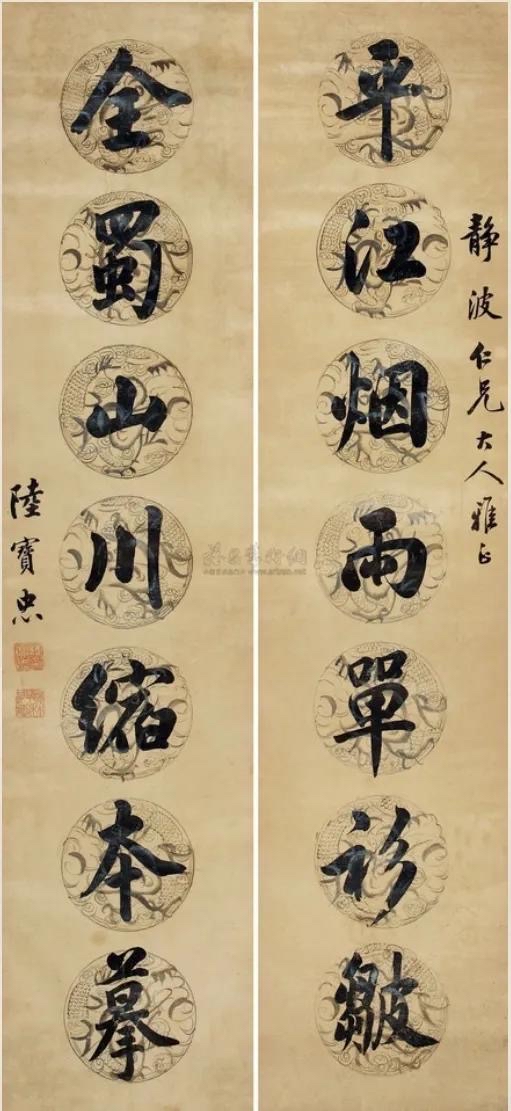 靜波仁兄大人雅正
平江烟雨單衫皺
全蜀山川縮本摹
陸寶忠